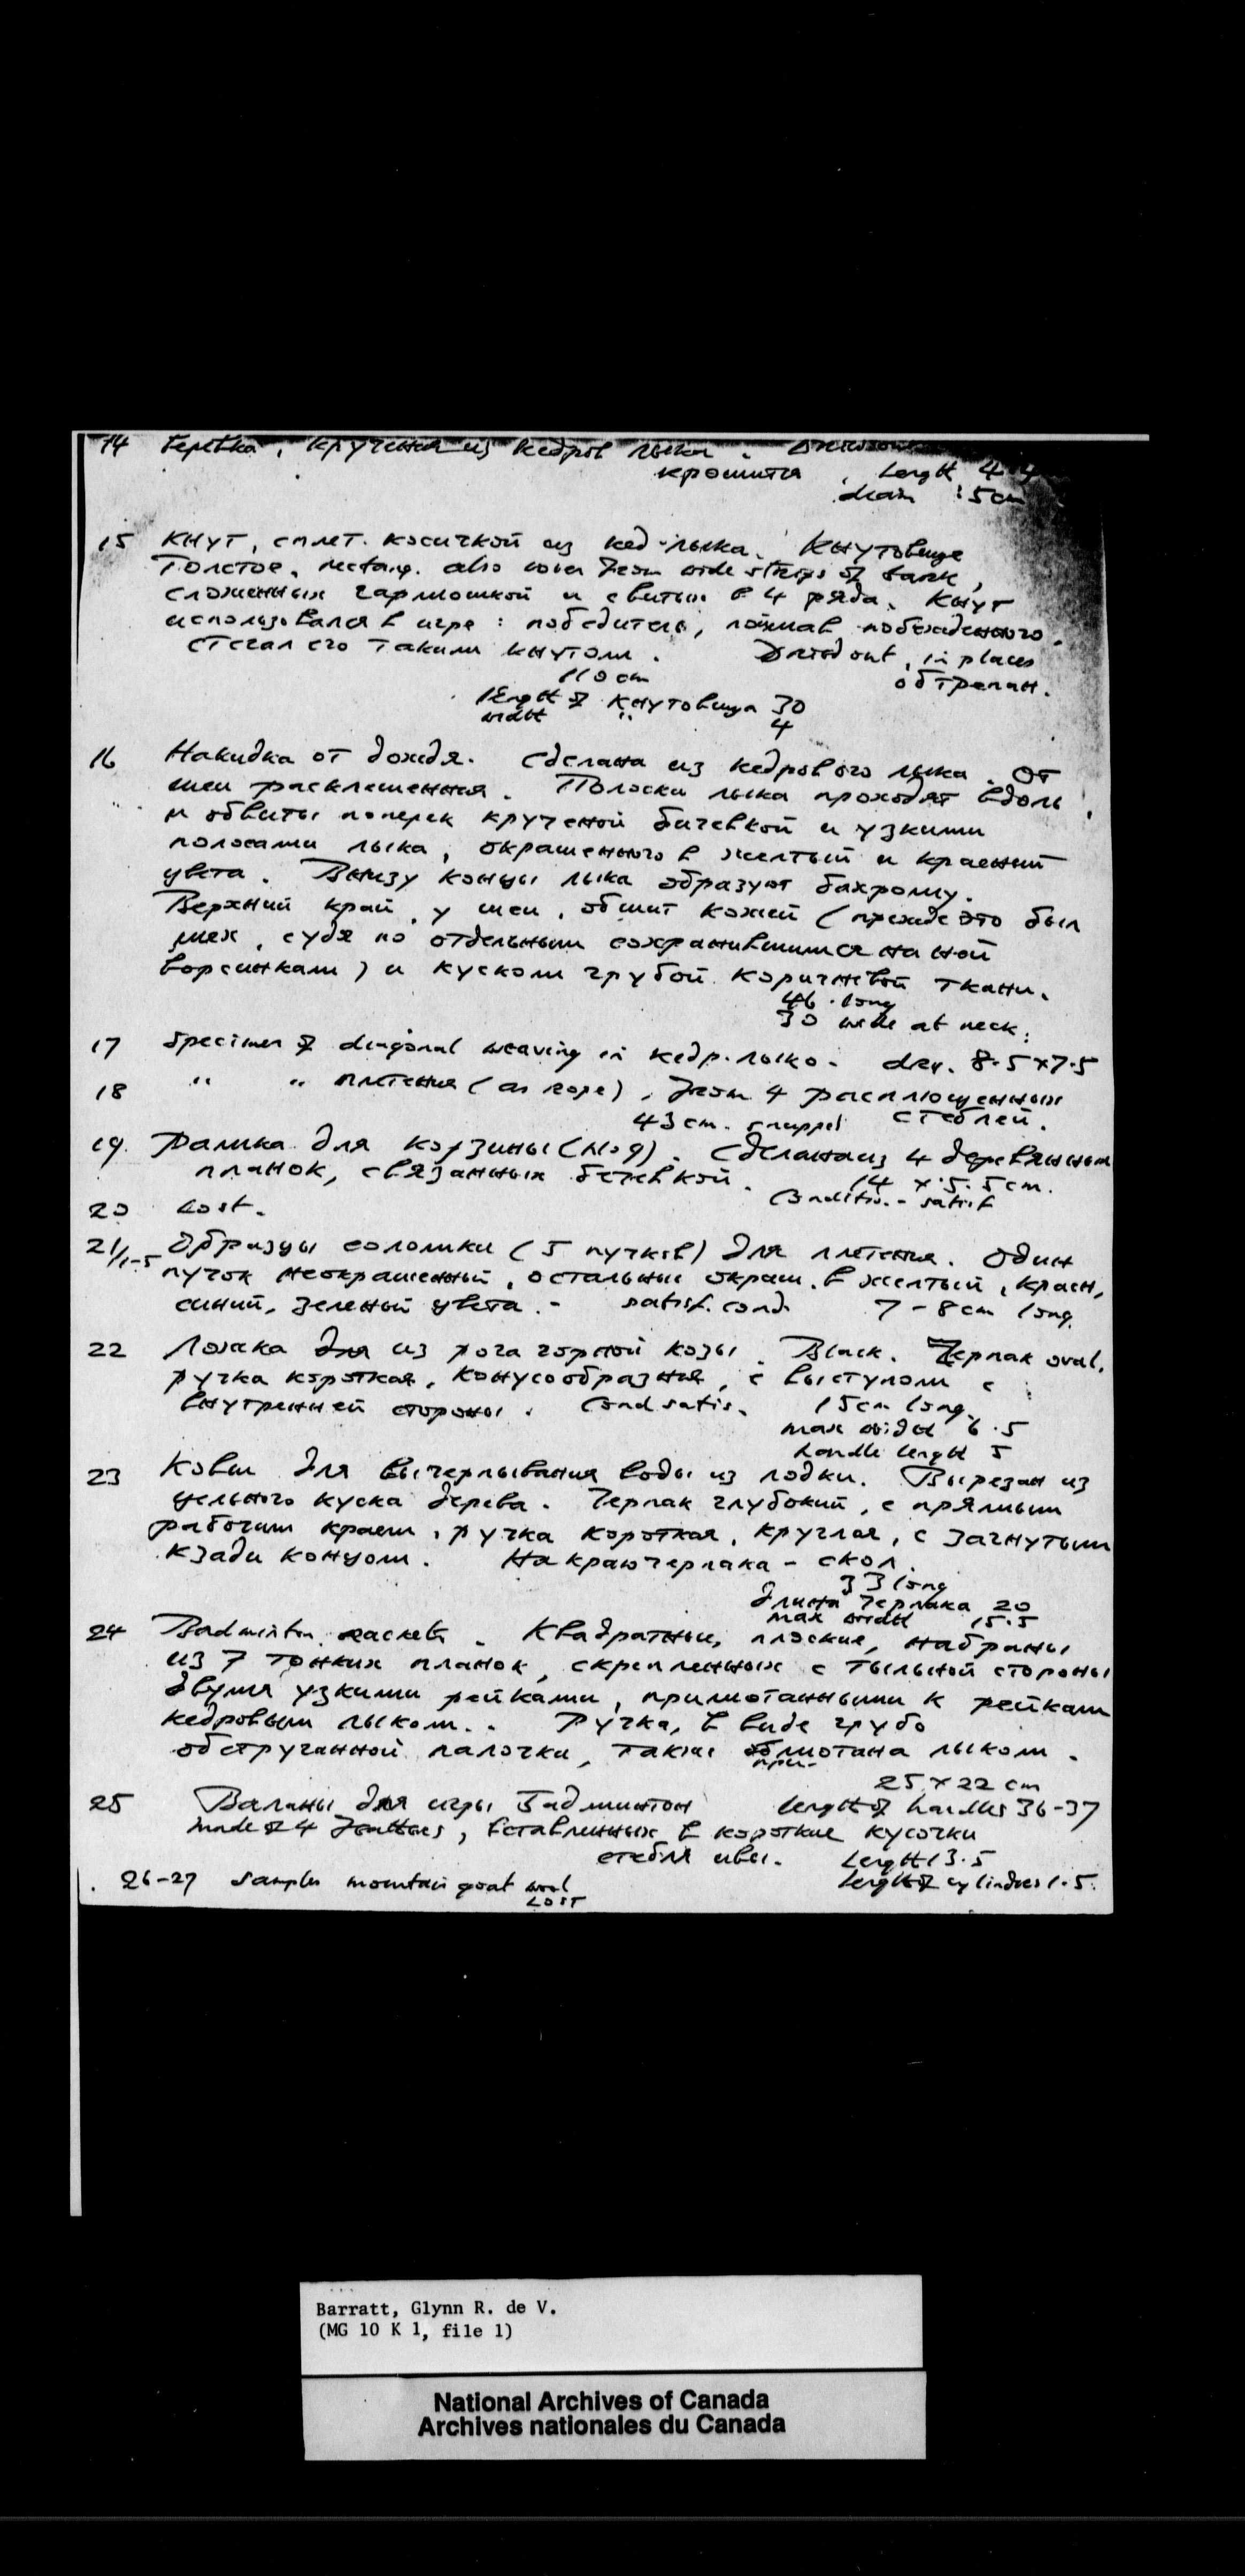 14 Веревка, крученая из кедров лыка.
крошится, Length 4.4
diam :5cm
15 Кнут, сплет. косичкой из кед. лыка. Кнутовище
толстое, rectang. also woven from wide strips of bark,
сложенных гармошкой и свитых в 4 ряда. Кнут
использовался в игре: победитель, поймав побежденного.
стегал его таким кнутом. Dried out, in places
110 cm обтрепан.
length of кнутовища 30
width " 4
16 Накидка от дождя. Сделана из кедрового лыка. От
шеи расклешенная. Полоски лыка проходят вдоль
и обвиты поперек крученой бичевкой и узкими
полосами лыка, окрашенного в желтый и красный
цвета. Внизу концы лыка образуют бахрому.
Верхний край, у шеи, обшит кожей (прежде это был
мех, судя по отдельным сохранившимся на ной
ворсинкам) и куском грубой коричневой ткани.
46 long
30 wide at neck.
17 Specimen of diagonal weaving in кедр. лыко. dry. 8.5 x 7.5
18 " " плетения (as rope), from 4 расплющенных
43 cm. snapped стеблей.
19. Рамка для корзины (No 9). Сделана из 4 деревянных
планок, связанных бечевкой. 14 x 5.5 cm.
Condition - satisf
20 Lost.
21/1-5 Образцы соломки (5 пучков) для плетения. Один
пучок неокрашенный, остальные окраш. в желтый, красн,
синий, зеленый цвета. - satisf. cond. 7-8cm long.
22 Ложка для из рога горной козы. Black. Черпак oval,
ручка короткая, конусообразная, с выступом с
внутренней стороны. Cond satis. 15cm long.
max width 6.5
handle length 5
23 Ковш для вычерпывания воды из лодки. Вырезан из
цельного куска дерева. Черпак глубокий, с прямым
рабочим краем, ручка короткая, круглая, с загнутым
кзади концом. На краю черпака - скол.
33 long
длина черпака 20
max width 15.5
24 Badminton rackets. Квадратные, плоские, набраны
из 7 тонких планок, скрепленных с тыльной стороны
двумя узкими рейками, примотанными к рейкам
кедровым лыком. Ручка, в виде грубо
обструганной палочки, также обмотана лыком.
при-
25 x 22 cm
25 Воланы для игры Бадминтон length of handles 36-37
made of 4 feathers, вставленных в короткие кусочки
стебля ивы. Length 13.5
26-27 Samples mountain goat wool Length of cylinders 1.5.
LOST
Barratt, Glynn R. de V.
(MG 10 K 1, file 1)
National Archives of Canada
Archives nationales du Canada